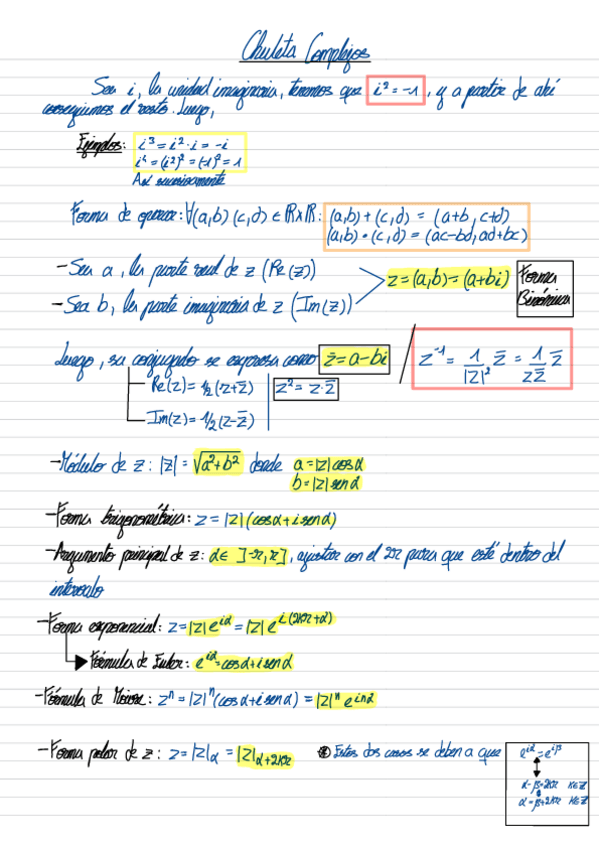 Chuleta Complejos
Sea i, la unidad imaginaria, tenemos que i² = -1, y a partir de ahí
conseguimos el resto. Luego,
Ejemplos: i³ = i²·i = -i
i⁴ = (i²)² = (-1)² = 1
Así sucesivamente
Forma de operar: ∀(a,b)(c,d) ∈ ℝxℝ: (a,b)+(c,d) = (a+b, c+d)
(a,b)•(c,d) = (ac-bd, ad+bc)
- Sea a, la parte real de z (Re(z))
z = (a,b) = (a+bi) Forma Binómica
- Sea b, la parte imaginaria de z (Im(z))
Luego, su conjugado se expresa como z̄ = a-bi / z⁻¹ = 1/|z|² z̄ = 1/zz̄ z̄
Re(z) = ½(z+z̄) z² = z·z̄
Im(z) = ½(z-z̄)
- Módulo de z: |z| = √a²+b² donde a = |z| cos α
b = |z| sen α
- Forma trigonométrica: z = |z| (cos α + i sen α)
- Argumento principal de z: α ∈ ]-π, π], ajustar con el 2π para que esté dentro del
intervalo
- Forma exponencial: z = |z| e^iα = |z| e^i(2kπ+α)
Fórmula de Euler: e^iα = cos α + i sen α
- Fórmula de Moivre: zⁿ = |z|ⁿ (cos α + i sen α) = |z|ⁿ e^inα
- Forma polar de z: z = |z|α = |z|α+2kπ * Estos dos casos se deben a que e^iα = e^iβ
α-β = 2kπ k∈ℤ
α = β+2kπ k∈ℤ